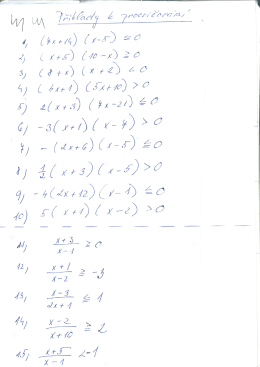 Příklady k procvičování
1) (7x+14) (x-5) ≤ 0
2) (x+5) (10-x) ≥ 0
3) (8+x) (x+2) < 0
4) (4x+1) (5x+10) > 0
5) 2(x+3) (7x-21) ≤ 0
6) -3(x+1) (x-4) > 0
7) -(2x+6) (x-5) ≤ 0
8) 1/2 (x+3) (x-5) > 0
9) -4(2x+12) (x-1) ≤ 0
10) 5(x+1) (x-2) > 0
11) x+3 / x-1 ≥ 0
12) x+1 / x-2 ≥ -3
13) x-3 / 2x+1 ≤ 1
14) x-2 / x+10 ≥ 2
15) x+5 / x-1 < -1